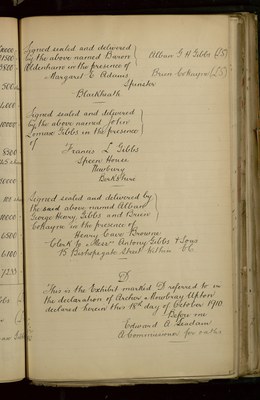 Signed sealed and delivered
by the above named Baron
Aldenham in the presence of
Margaret E Adams
Spinster
Blackheath
Alban G H Gibbs (LS)
Brien Cokayne (LS)
Signed sealed and delivered
by the above named John
Lomax Gibbs in the presence
of
Francis L Gibbs
Speen House
Newbury
Berkshire
Signed sealed and delivered by
the said above named Alban
George Henry Gibbs and Brien
Cokayne in the presence of
Henry Cave Browne
Clerk to Messrs Antony Gibbs & Sons
15 Bishopsgate Street Within EC
D
This is the Exhibit marked D referred to in
the declaration of Archer Mowbray Upton
declared herein this 18th day of October 1910.
Before me
Edward A.
A Commissioner for oaths